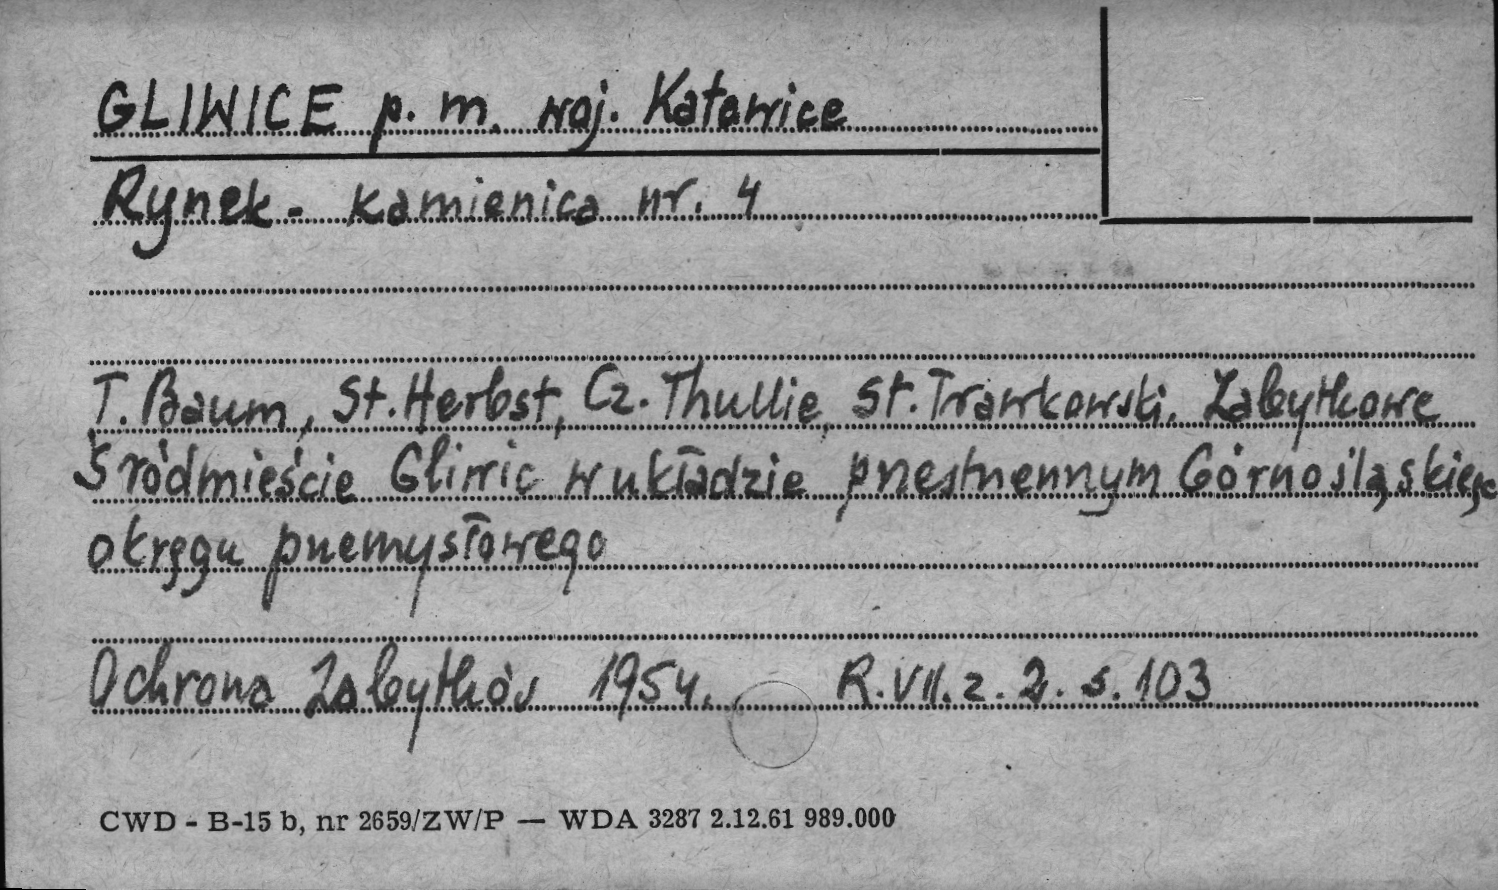 GLIWICE p. m. woj. Katowice
Rynek - kamienica nr. 4
T. Baum, St. Herbst, Cz. Thullie, St. Trawkowski. Zabytkowe
Śródmieście Gliwic w układzie przestrzennym Górnośląskiego
okręgu przemysłowego
Ochrona Zabytków 1954. R. VII. z. 2. s. 103
CWD - B-15 b, nr 2659/ZW/P — WDA 3287 2.12.61 989.000